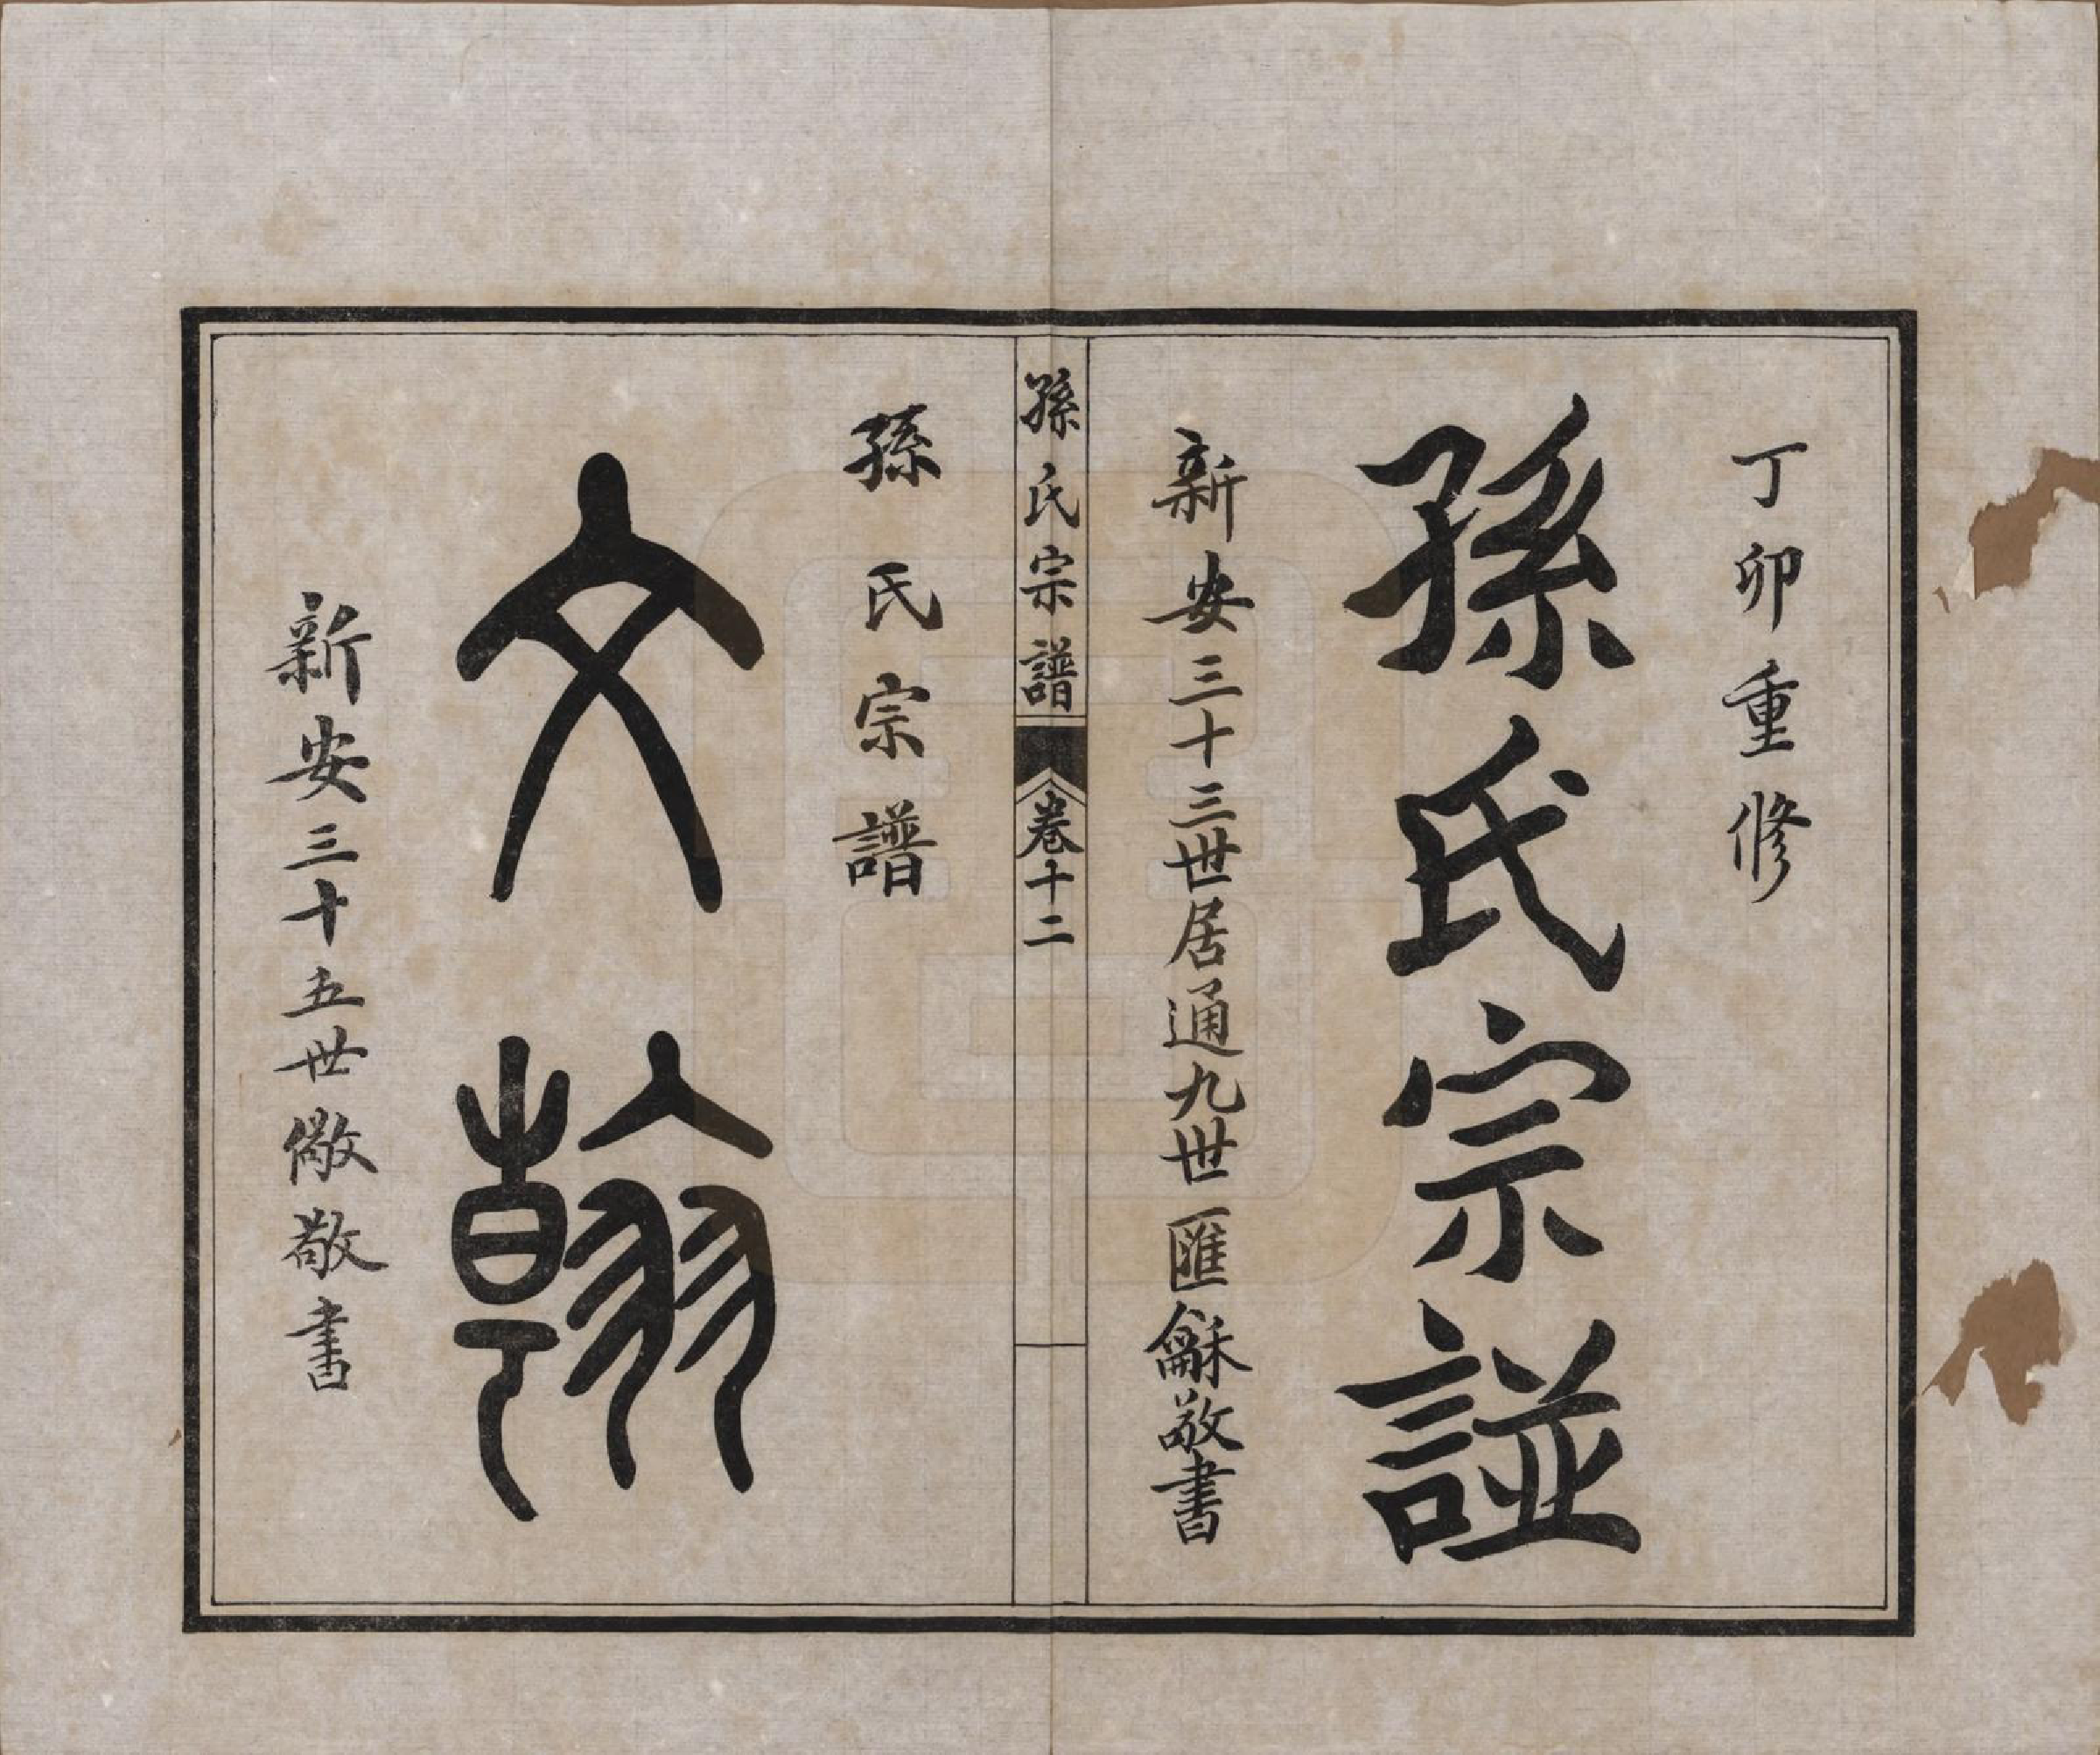 丁卯重修
孫氏宗譜
新安三十三世居通九世匯龢敬書
孫氏宗譜 卷十二
孫氏宗譜
文翰
新安三十五世儆敬書